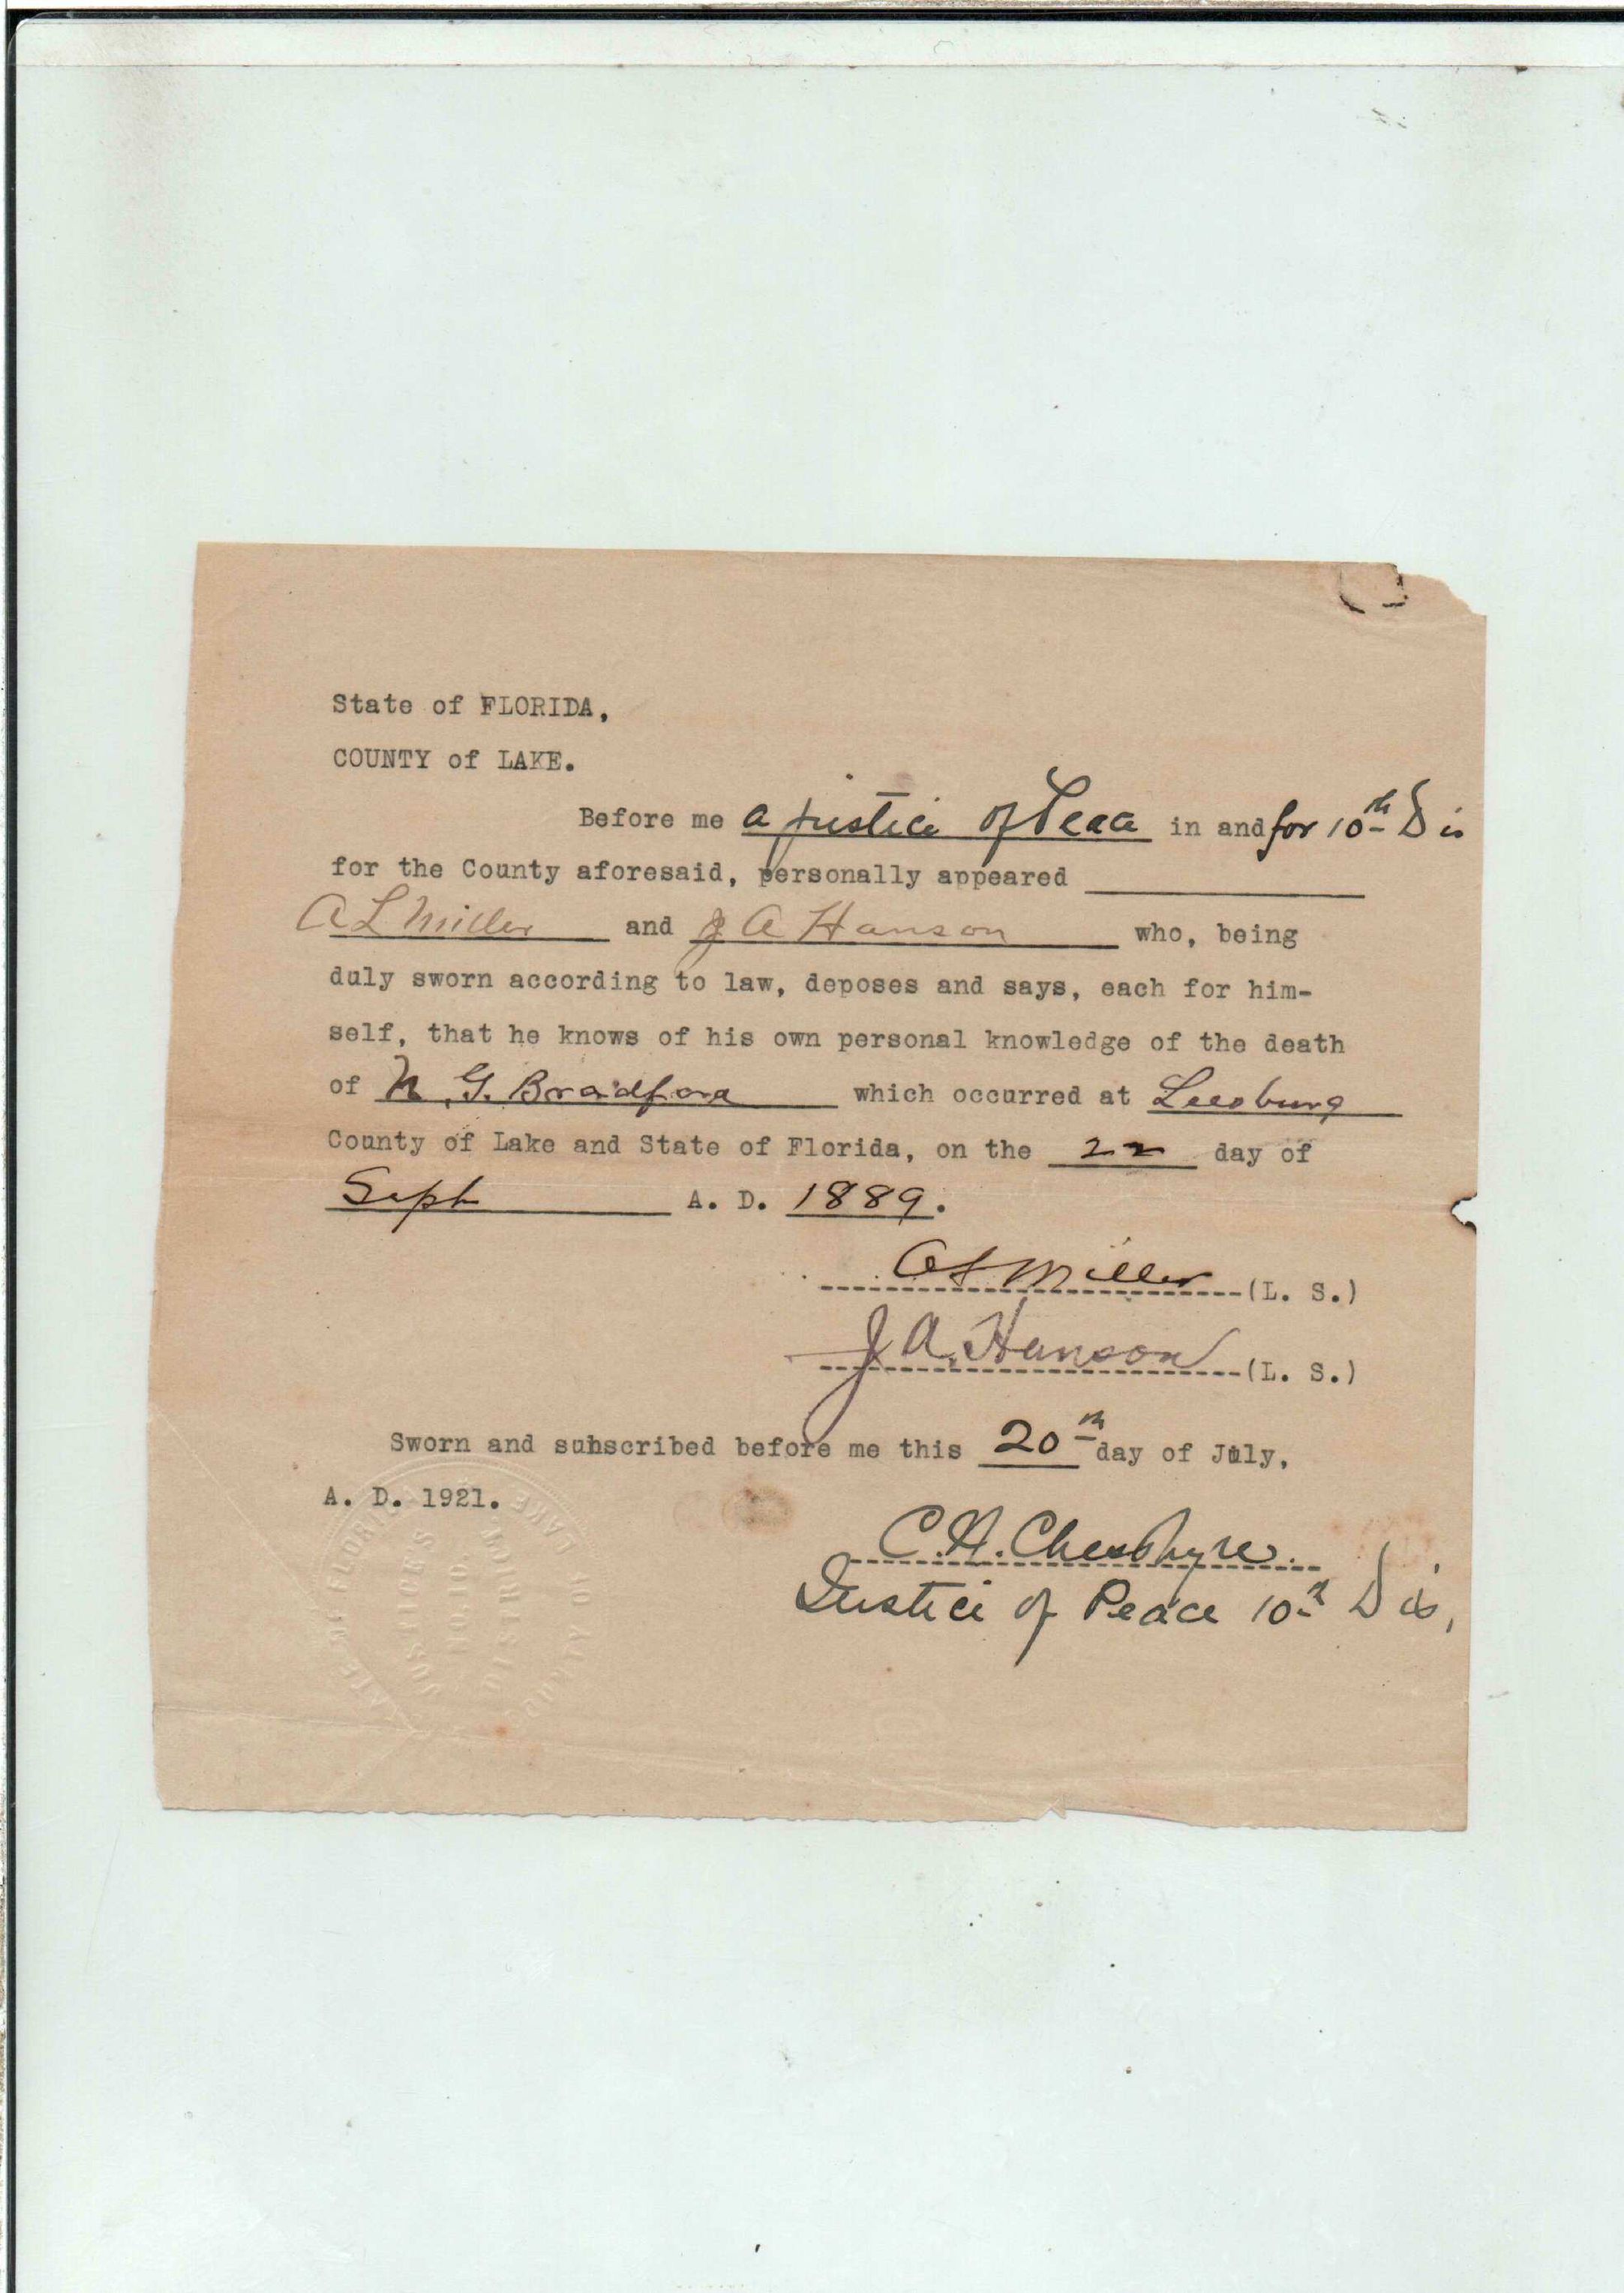 State of FLORIDA,
COUNTY of LAKE.
Before me a justice of Peace in and for 10th Dis
for the County aforesaid, personally appeared
A L Miller and J A Hanson who, being
duly sworn according to law, deposes and says, each for him-
self, that he knows of his own personal knowledge of the death
of N. G. Bradford which occurred at Leesburg
County of Lake and State of Florida, on the 22 day of
Sept A. D. 1889.
A L Miller (L. S.)
J A. Hanson (L. S.)
Sworn and subscribed before me this 20th day of July,
A. D. 1921.
C. H. Cheshyre.
Justice of Peace 10th Dis,
STATE OF FLORIDA
JUSTICE'S
LAKE